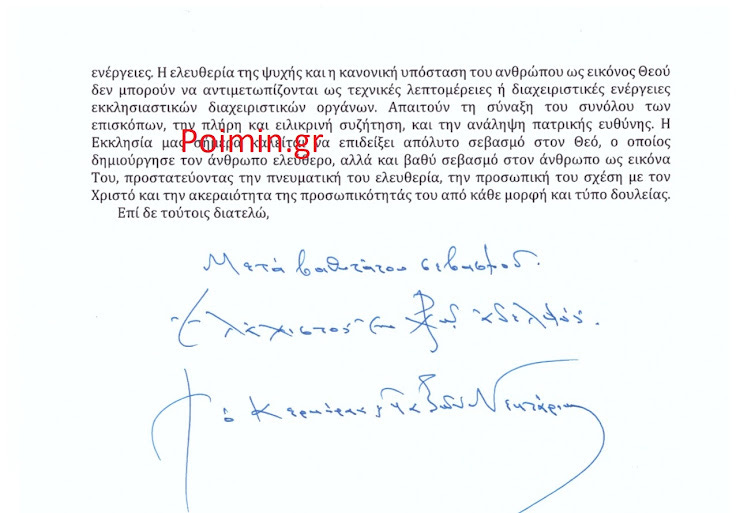 ενέργειες. Η ελευθερία της ψυχής και η κανονική υπόσταση του ανθρώπου ως εικόνος Θεού
δεν μπορούν να αντιμετωπίζονται ως τεχνικές λεπτομέρειες ή διαχειριστικές ενέργειες
εκκλησιαστικών διαχειριστικών οργάνων. Απαιτούν τη σύναξη του συνόλου των
επισκόπων, την πλήρη και ειλικρινή συζήτηση, και την ανάληψη πατρικής ευθύνης. Η
Poimin.gr
Εκκλησία μας σήμερα καλείται να επιδείξει απόλυτο σεβασμό στον Θεό, ο οποίος
δημιούργησε τον άνθρωπο ελεύθερο, αλλά και βαθύ σεβασμό στον άνθρωπο ως εικόνα
Του, προστατεύοντας την πνευματική του ελευθερία, την προσωπική του σχέση με τον
Χριστό και την ακεραιότητα της προσωπικότητάς του από κάθε μορφή και τύπο δουλείας.
Επί δε τούτοις διατελώ,
Μετά βαθυτάτου σεβασμού.
Ἐλάχιστος ἐν Χῷ ἀδελφός.
† ὁ Κερκύρας, Παξῶν Νεκτάριος